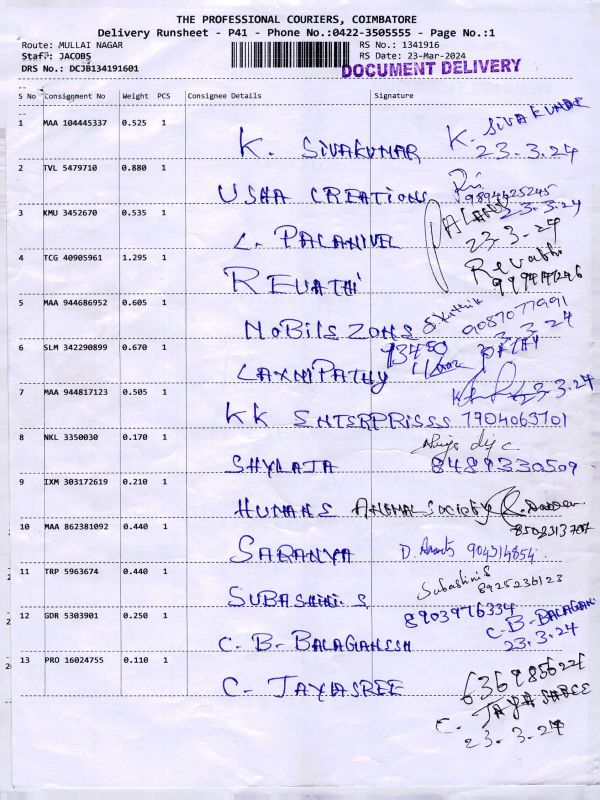 THE PROFESSIONAL COURIERS, COIMBATORE
Delivery Runsheet - P41 - Phone No.:0422-3505555 - Page No.:1
Route: MULLAI NAGAR RS No.: 1341916
Staff: JACOBS RS Date: 23-Mar-2024
DRS No.: DCJB134191601 DOCUMENT DELIVERY
S No Consignment No Weight PCS Consignee Details Signature
1 MAA 104445337 0.525 1 K. SIVAKUMAR K. SIVAKUMAR
23.3.24
2 TVL 5479710 0.880 1 USHA CREATIONS 9894425245
23.3.24
3 KMU 3452670 0.535 1 L. PALANIVEL PALANI
23.3.24
4 TCG 40905961 1.295 1 REVATHI Revathi
5 MAA 944686952 0.605 1 MOBILE ZONE 9087077991
23.3.24
6 SLM 342290899 0.670 1 LAXMIPATHY 73450
7 MAA 944817123 0.505 1 KK ENTERPRISES 23.3.24
7904063701
8 NKL 3350030 0.170 1 SHYLAJA 8489330509
9 IXM 303172619 0.210 1 HUMANE ANIMAL Society
10 MAA 862381092 0.440 1 SARANYA
11 TRP 5963674 0.440 1 SUBASHINI. S Subashini S
8925236123
12 GDR 5303901 0.250 1 C. B. BALAGANESH 8903976334
C. B. BALAGAN
23.3.24
13 PRO 16024755 0.110 1 C. JAYASREE
C. JAYA SHREE
23.3.24